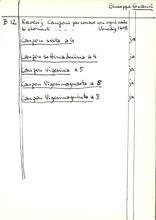 Giuseppe Guami
B 12 Raverij Canzoni per sonar con ogni sorte
di stromenti ... Venedig 1608
Canzon sesta a 4 ja
Canzon settimadecima a 4 ja
Canzon vigesima a 5 ja
Canzon Vigesimaquarta a 8 ja
Canzon Vigesimaquinta a 8 ja